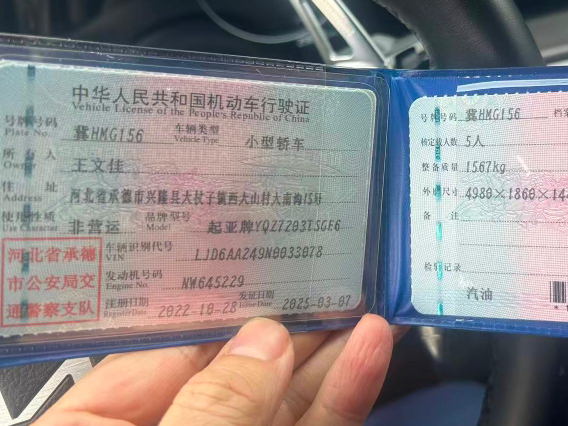 中华人民共和国机动车行驶证
Vehicle License of the People's Republic of China
号牌号码 Plate No. 冀HMG156 车辆类型 Vehicle Type 小型轿车
所有人 Owner 王文佳
住址 Address 河北省承德市兴隆县大杖子镇西大山村大南沟15号
使用性质 Use Character 非营运 品牌型号 Model 起亚牌YQZ7203TSGE6
河北省承德
市公安局交
通警察支队
车辆识别代号 VIN LJD6AA249N0033078
发动机号码 Engine No. NW645229
注册日期 Register Date 2022-10-28 发证日期 Issue Date 2025-03-07
号牌号码 冀HMG156 档案
核定载人数 5人
整备质量 1567kg
外廓尺寸 4980×1860×144
备注
检验记录
汽油